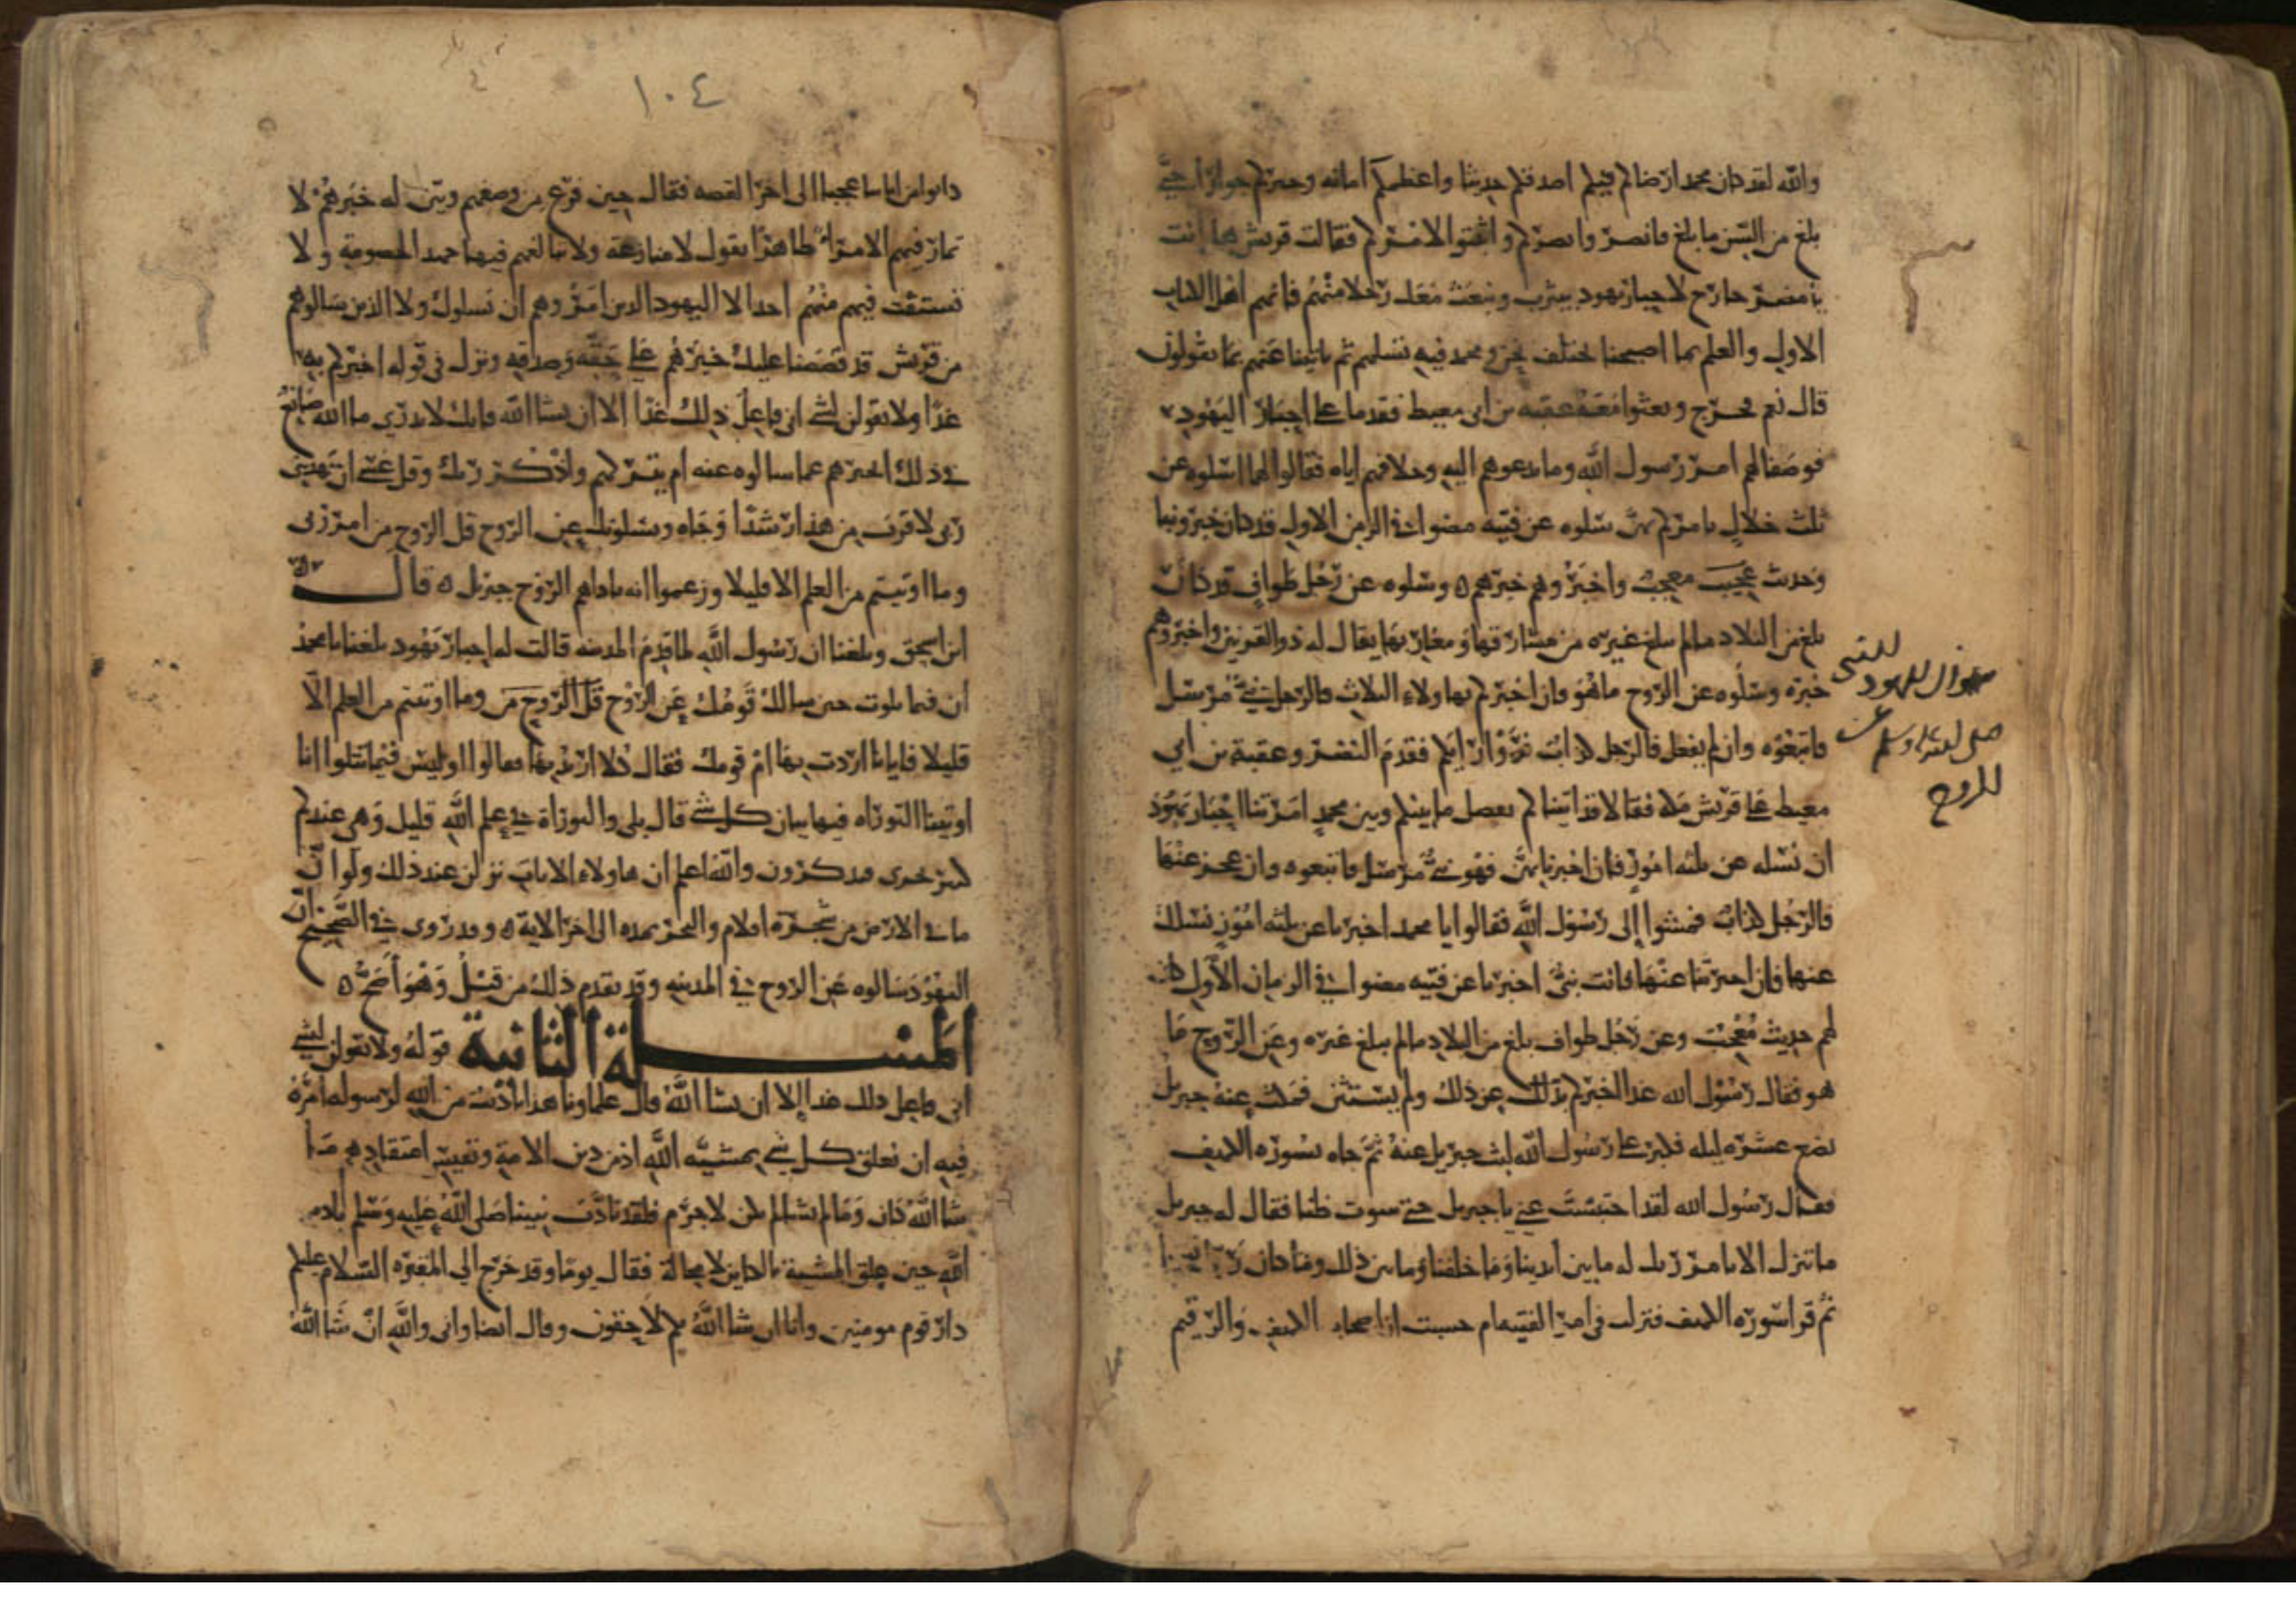 والله لقد كان محمد ارضاكم فيكم اصدقكم حديثا واعظمكم امانه وخيركم جوارا حتى
بلغ من السن ما بلغ فانصر وا نصركم واثبتوا لامركم فقالت قريش ها انت
يا نضر خارج لاحبار يهود بيثرب ونبعث معك رجلا منهم فانهم اهل الكتاب
الاول والعلم بما اصبحنا نختلف نحن ومحمد فيه نسلهم ثم ياتينا عنهم بما يقولون
قال نعم فخرج وبعثوا معه عقبه بن ابي معيط فقدما على احبار اليهود
فوصفا لهم امر رسول الله وما يدعوهم اليه وخلافهم اياه فقالوا لهما اسلوه عن
ثلث خلال نامركم بهن سلوه عن فتيه مضوا في الزمن الاول قد كان خبر ونبا
وحديث عجيب معجب واخبروهم خبرهم وسلوه عن رجل طواف قد كان
بلغ من البلاد ما لم يبلغ غيره من مشارقها ومغاربها يقال له ذو القرنين واخبروهم
خبره وسلوه عن الروح ما هو فان اخبركم بهاولاء الثلاث فالرجل نبي مرسل
فاتبعوه وان لم يفعل فالرجل كذاب فروا رايكم فقدم النضر وعقبة بن ابي
معيط على قريش مكه فقالا قد اتيناكم بفصل ما بينكم وبين محمد امرتنا احبار يهود
ان نسله عن ثلثه امور فان اخبرنا بهن فهو نبي مرسل فاتبعوه وان عجز عنها
فالرجل كذاب فمشوا الى رسول الله فقالوا يا محمد اخبرنا عن ثلثه امور نسلك
عنها فان اخبرتنا عنها فانت نبي اخبرنا عن فتيه مضوا في الزمان الاول كان
لهم حديث معجب وعن رجل طواف بلغ من البلاد ما لم يبلغ غيره وعن الروح ما
هو فقال رسول الله غدا اخبركم عن ذلك ولم يستثن فمكث عنه جبريل
بضع عشره ليله فكبر على رسول الله لبث جبريل عنه ثم جاه بسوره الكهف
فقال رسول الله لقد احتبست عني يا جبريل حتى سوت ظنا فقال له جبريل
ما نتنزل الا بامر ربك له ما بين ايدينا وما خلفنا وما بين ذلك وما كان ربك نسيا
ثم قرا سوره الكهف فنزلت في امر الفتيه ام حسبت ان اصحاب الكهف والرقيم
سوال اليهود للنبي
صلى الله عليه وسلم عن
الروح
١٠٤
كانوا من اياتنا عجبا الى اخر القصه فقال حين فرغ من وصفهم وبين له خبرهم لا
تمار فيهم الا مراء ظاهرا يقول لا منازعة ولا تبالغهم فيها جهد الخصومة ولا
تستفت فيهم منهم احدا لا اليهود الذين امروهم ان يسلوك ولا الذين سالوهم
من قريش قد قصصنا عليك خبرهم على حقه وصدقه ونزل في قوله اخبركم به
غدا ولا تقولن لشي اني فاعل ذلك غدا الا ان يشا الله فانك لا تدري ما الله صانع
في ذلك اخبرهم عما سالوه عنه ام يتركهم واذكر ربك وقل عسى ان يهديني
ربي لاقرب من هذا رشدا وجاه ويسلونك عن الروح قل الروح من امر ربي
وما اوتيتم من العلم الا قليلا وزعموا انه ناداهم الروح جبريل قال
ابن اسحق وبلغنا ان رسول الله لما قدم المدينه قالت له احبار يهود بلغنا يا محمد
ان فيما تلوت حين سالك قومك عن الروح قل الروح من وما اوتيتم من العلم الا
قليلا فايانا اردت بها ام قومك فقال كلا اردت بها فقالوا اوليس فيما تتلوا انا
اوتينا التوراه فيها بيان كل شي قال بلى والتوراة في علم الله قليل وهي عندكم
كبر خرى مدكرون والله اعلم ان هاولاء الايات نزلن عند ذلك ولو ان
ما في الارض من شجرة اقلام والبحر يمده الى اخر الايه وقد روي في الصحيح ان
اليهود سالوه عن الروح في المدينه وقد تقدم ذلك من قبل وهو اصح
المسلة الثانية قوله ولا تقولن لشي
اني فاعل ذلك غدا الا ان يشا الله قال علماونا هذا تاديب من الله لرسوله امره
فيه ان يعلق كل شي بمشيه الله اذ من دين الامة ونفيس اعتقادهم ما
شا الله كان وما لم يشا لم يكن لا جرم فلقد تادب نبينا صلى الله عليه وسلم بادب
الله حين علق المشية بالكاين لا محالة فقال يوما وقد خرج الى المقبره السلام عليكم
دار قوم مومنين وانا ان شا الله بكم لاحقون وقال ايضا واني والله ان شا الله